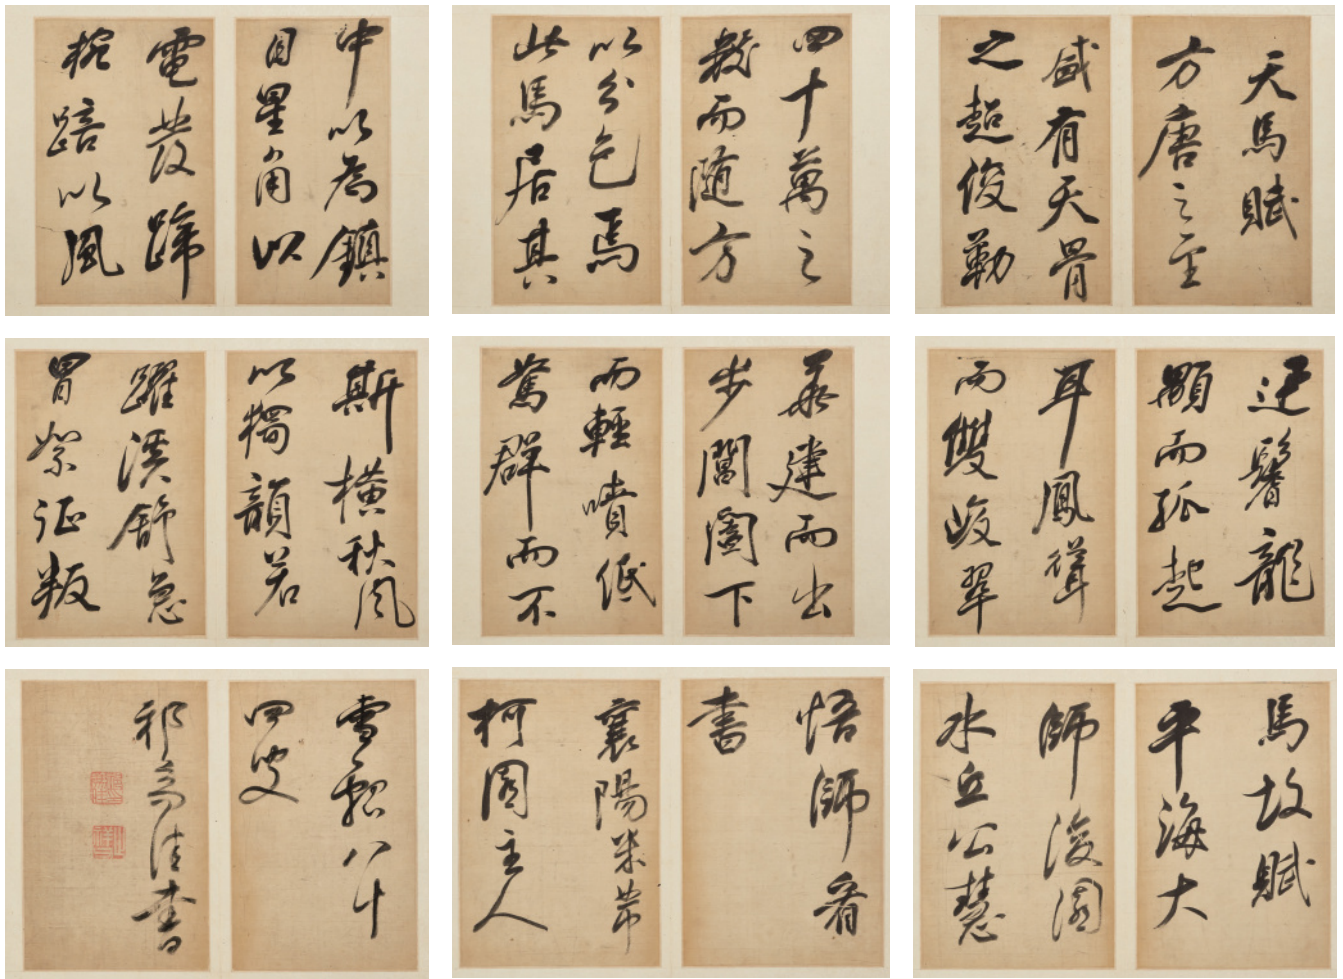 天馬賦
方唐之至
盛有天骨
之超俊勒
四十萬之
數而隨方
以分色焉
此馬居其
中以為鎮
目星角以
電發蹄
椀踣以風
迅鬐龍
顒而孤起
耳鳳聳
而雙峻翠
華建而出
步閶闔下
而輕噴低
駑群而不
斯橫秋風
以獨韻若
躍溪舒急
冒絮征叛
馬故賦
平海大
師浚園
水丘公慧
悟師看
書
襄陽米芾
柯園主人
雪瓢八十
四叟
祁豸佳書